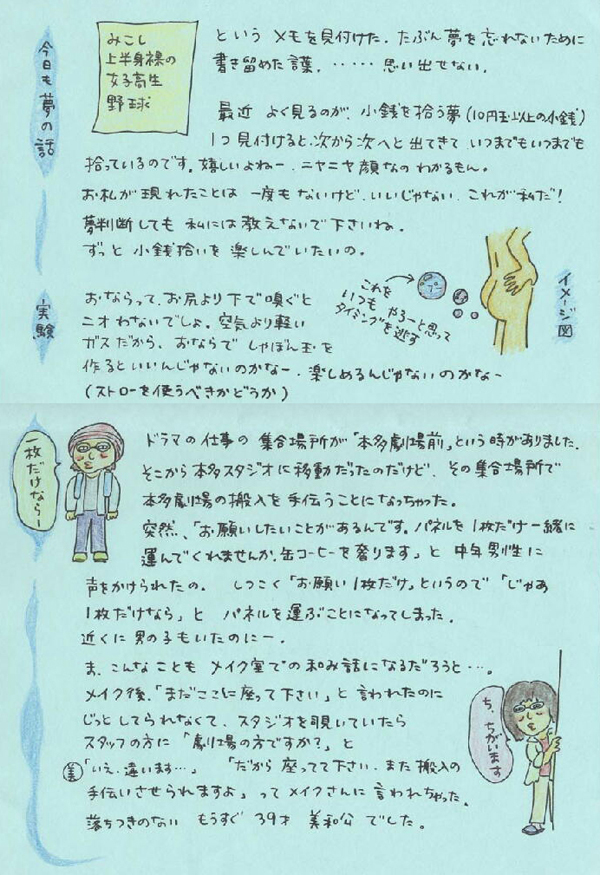 今日も夢の話
みこし
上半身裸の
女子高生
野球
という メモを見付けた。たぶん夢を忘れないために
書き留めた言葉。‥‥‥思い出せない。
最近 よく見るのが、小銭を拾う夢(10円玉以上の小銭)
1つ見付けると、次から次へと出てきて いつまでもいつまでも
拾っているのです。嬉しいよねー。ニヤニヤ顔なの わかるもん。
お札が現れたことは 一度もないけど、いいじゃない、これが私だ!
夢判断しても 私には教えないで下さいね。
ずっと 小銭拾いを 楽しんでいたいの。
実験
おならって、お尻より下で嗅ぐと
ニオわないでしょ。空気より軽い
ガスだから、おならで しゃぼん玉を
作るといいんじゃないのかなー。楽しめるんじゃないのかなー
(ストローを使うべきかどうか)
これを
いつも やろーと思って
タイミングを逃す
イメージ図
一枚だけならー
ドラマの仕事の 集合場所が「本多劇場前」という時がありました。
そこから本多スタジオに移動だったのだけど、その集合場所で
本多劇場の搬入を手伝うことになっちゃった。
突然、「お願いしたいことがあるんです。パネルを1枚だけ一緒に
運んでくれませんか。缶コーヒーを奢ります」と 中年男性に
声をかけられたの。 しつこく「お願い1枚だけ」というので「じゃあ
1枚だけなら」と パネルを運ぶことになってしまった。
近くに男の子もいたのにー。
ま、こんなことも メイク室での和み話になるだろうと…。
メイク後、「まだここに座って下さい」と言われたのに
じっとしてられなくて、スタジオを覗いていたら
スタッフの方に「劇場の方ですか?」と
美「いえ、違います…」 「だから 座ってて下さい。また搬入の
手伝いさせられますよ」ってメイクさんに言われちゃった。
落ちつきのない もうすぐ 39才 美和公 でした。
ち、ちがいます